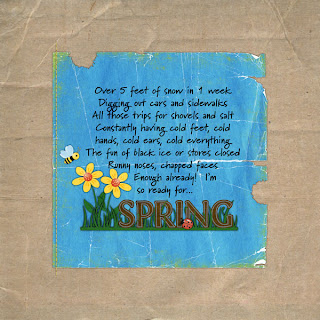 Over 5 feet of snow in 1 week
Digging out cars and sidewalks
All those trips for shovels and salt
Constantly having cold feet, cold
hands, cold ears, cold everything
The fun of black ice or stores closed
Runny noses, chapped faces
Enough already! I'm
so ready for...
SPRING